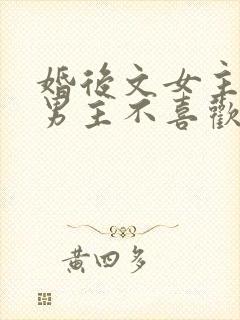 婚後文女主
男主不喜歡
黄四多